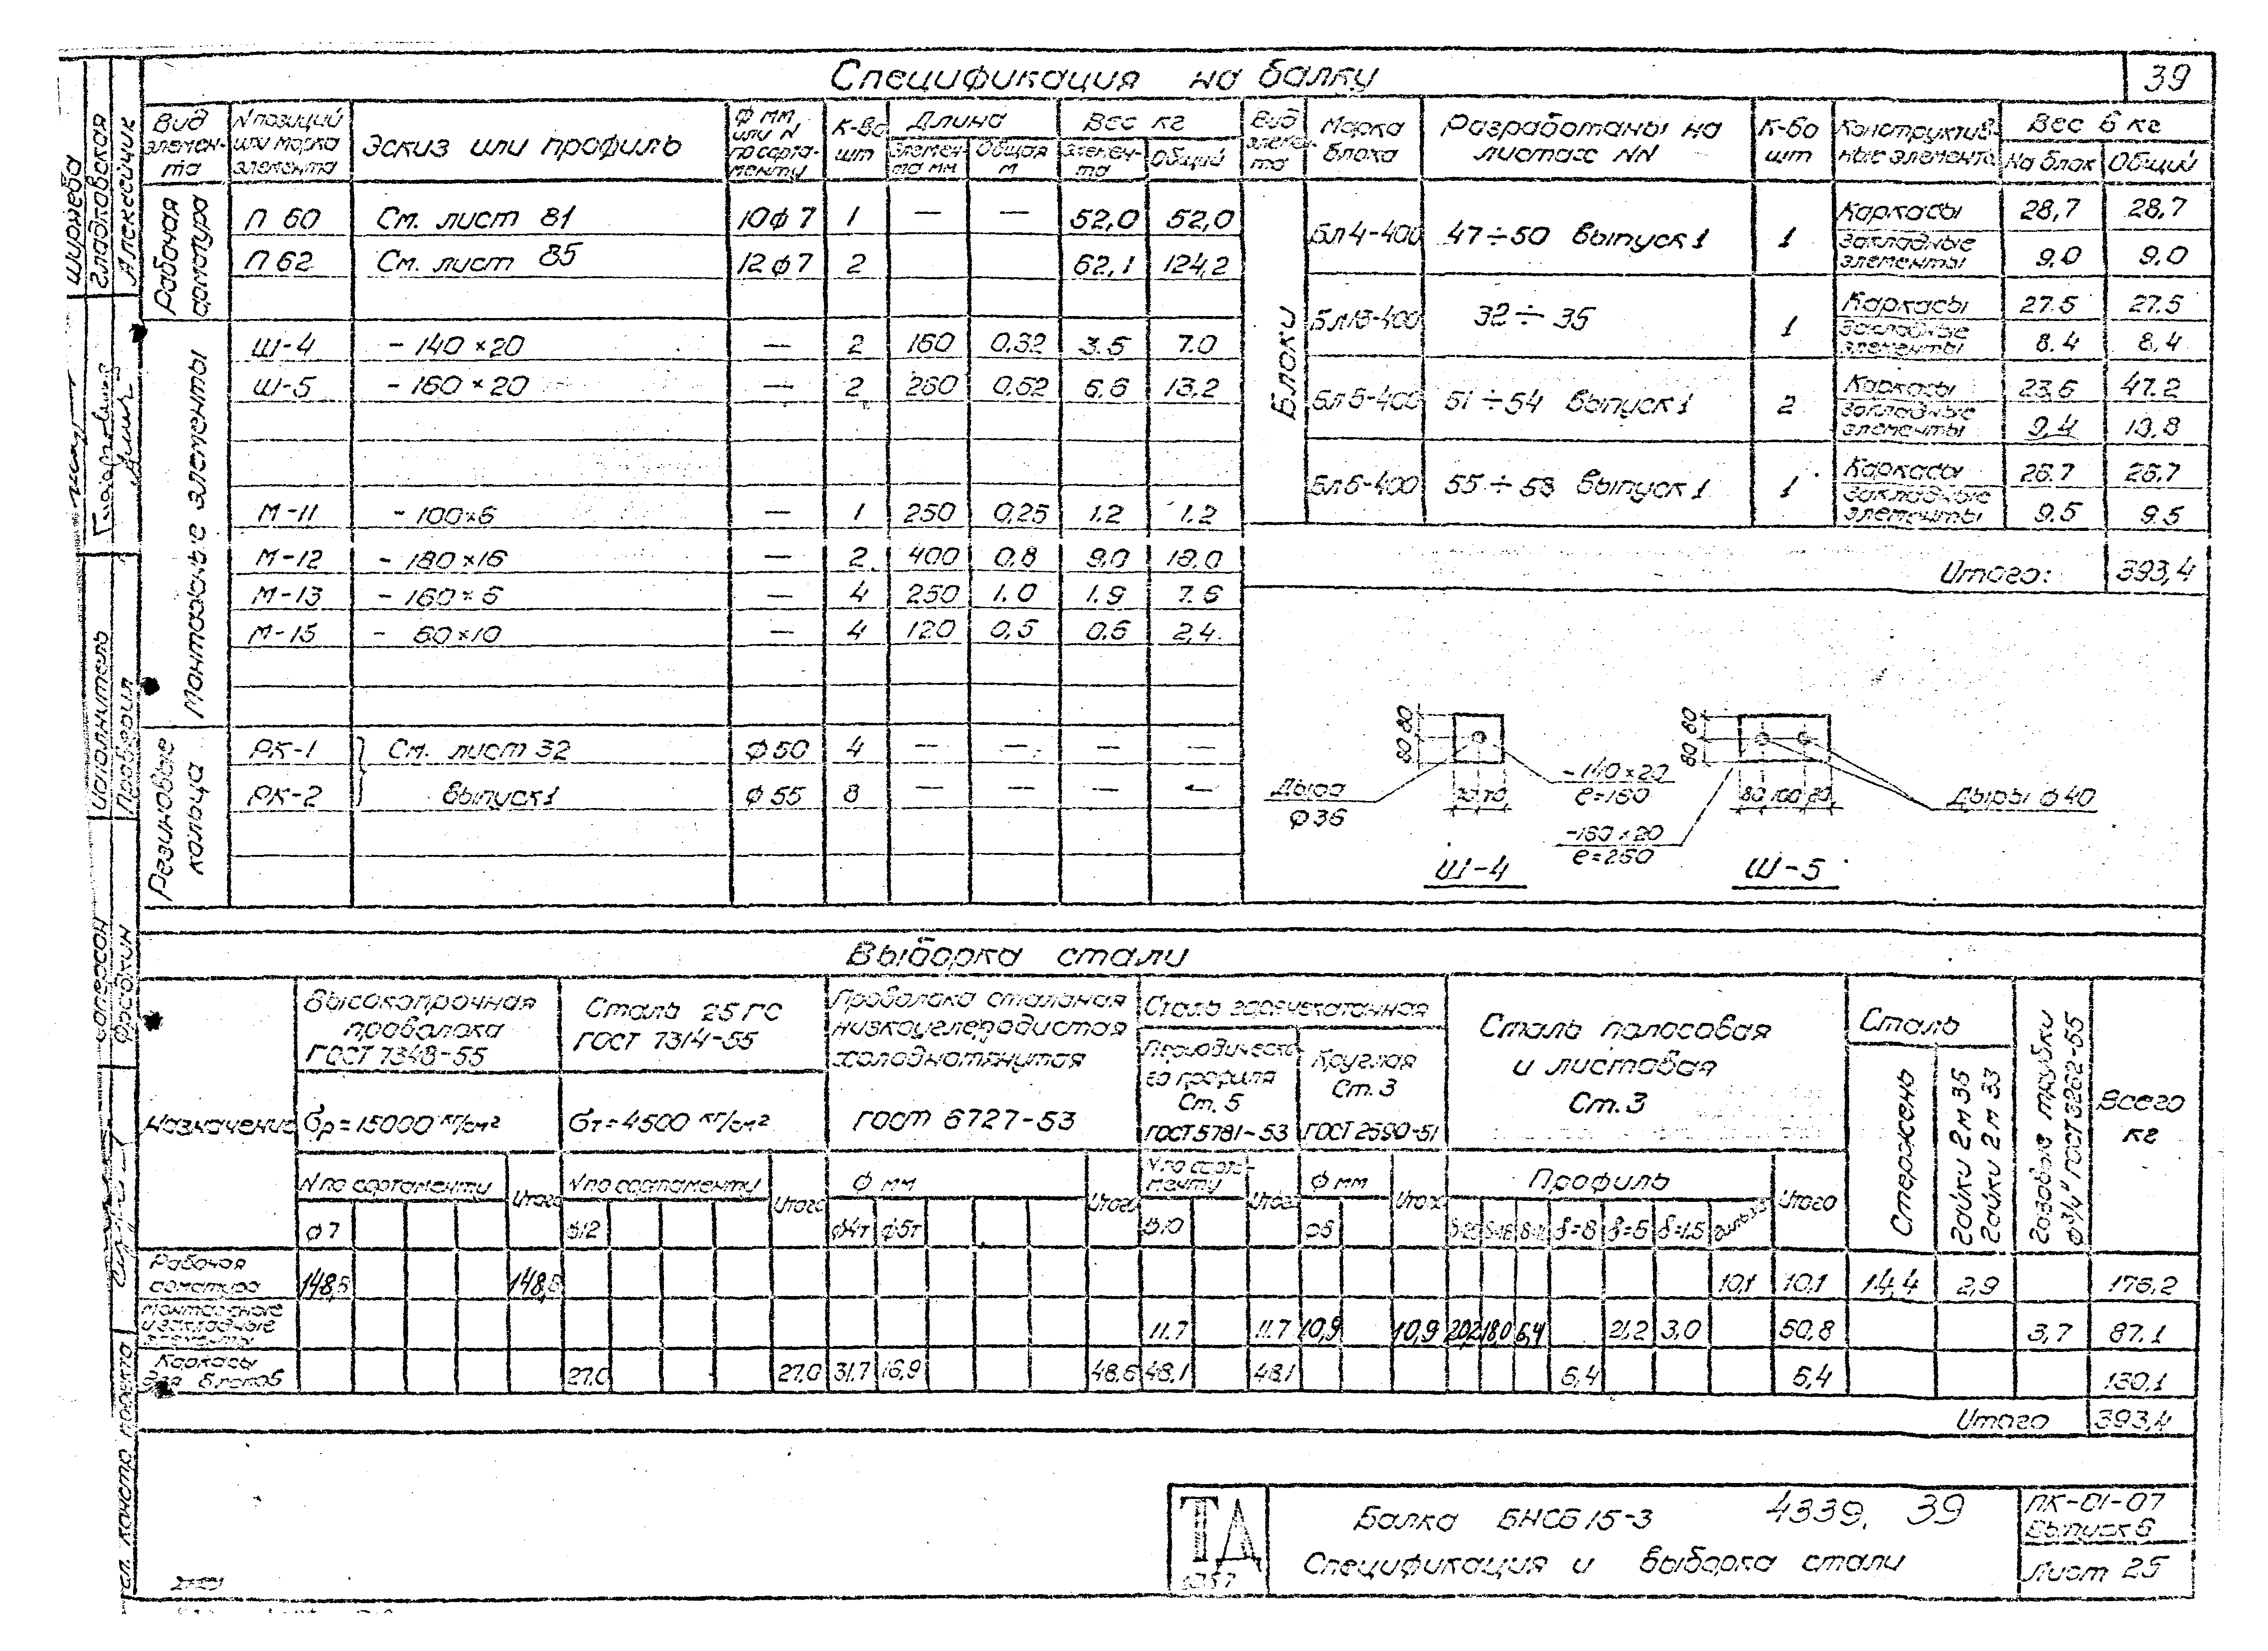 Спецификация на балку
39
Вид элемента
N позиций или марка элемента
Эскиз или профиль
Ф мм или N по сортаменту
К-во шт
Длина
Элемента мм
Общая м
Вес кг
Элемента
Общий
Рабочая арматура
П 60 См. лист 81 10ф7 1 — — 52,0 52,0
П 62 См. лист 85 12ф7 2 62,1 124,2
Монтажные элементы
Ш-4 - 140×20 — 2 160 0,32 3.5 7.0
Ш-5 - 160×20 — 2 260 0,52 6.6 13.2
М-11 - 100×6 — 1 250 0,25 1.2 1.2
М-12 - 180×16 — 2 400 0,8 9.0 18.0
М-13 - 160×6 — 4 250 1.0 1.9 7.6
М-15 - 60×10 — 4 120 0,5 0.6 2,4
Резиновые кольца
РК-1 См. лист 32 ф50 4 — — — —
РК-2 Выпуск 1 ф55 8 — — — —
Вид элемента
Марка блока
Разработаны на листах NN
К-во шт
Конструктивные элементы
Вес в кг
На блок
Общий
Блоки
Бл4-400 47÷50 Выпуск 1 1
Каркасы 28,7 28,7
Закладные элементы 9.0 9.0
32÷35 1
Каркасы 27.5 27.5
Закладные элементы 8.4 8,4
Бл5-400 51÷54 Выпуск 1 2
Каркасы 23,6 47.2
Закладные элементы 9.4
Бл6-400 55÷58 Выпуск 1 1
Каркасы 26.7 26,7
Закладные элементы 9.5 9.5
Итого: 393,4
80 80
Дыра
ф36
70 70
-140×20
ℓ=160
Ш-4
80 80
80 100 80
-160×20
ℓ=260
Дыры ф40
Ш-5
Выборка стали
Назначение
Высокопрочная проволока
ГОСТ 7348-55
σр=15000 кг/см²
N по сортаменту
Итого
ф7
Сталь 25ГС
ГОСТ 7314-55
σт=4500 кг/см²
N по сортаменту
Итого
ф12
Проволока стальная низкоуглеродистая холоднотянутая
ГОСТ 6727-53
ф мм
Итого
ф4т ф5т
Сталь горячекатанная
Периодического профиля
Ст. 5
ГОСТ 5781-53
N по сортаменту
Итого
ф10
Круглая
Ст. 3
ГОСТ 2590-51
ф мм
Итого
Сталь полосовая
и листовая
Ст.3
Профиль
Итого
δ=8 δ=6 δ=1.5
Сталь
Стержень
Гайки 2м36
Гайки 2м33
Газовые трубки
ф3/4" ГОСТ 3262-55
Всего
кг
Рабочая арматура 148,6 148,6 10,1 10,1 14,4 2,9 176,2
Монтажные и закладные элементы 11.7 11.7 10,9 10,9 20,2 18,0 6,4 21,2 3,0 3,7 87.1
Каркасы для блоков 27.0 27.0 31.7 16,9 48.6 48,1 48,1 6,4 6,4 130,1
Итого 393,4
ТД
1957
Балка БНСБ 15-3
4339, 39
Спецификация и выборка стали
ПК-01-07
Выпуск 6
Лист 25
Ширяева
Гладковская
Алексейчик
Исполнитель
Проверил